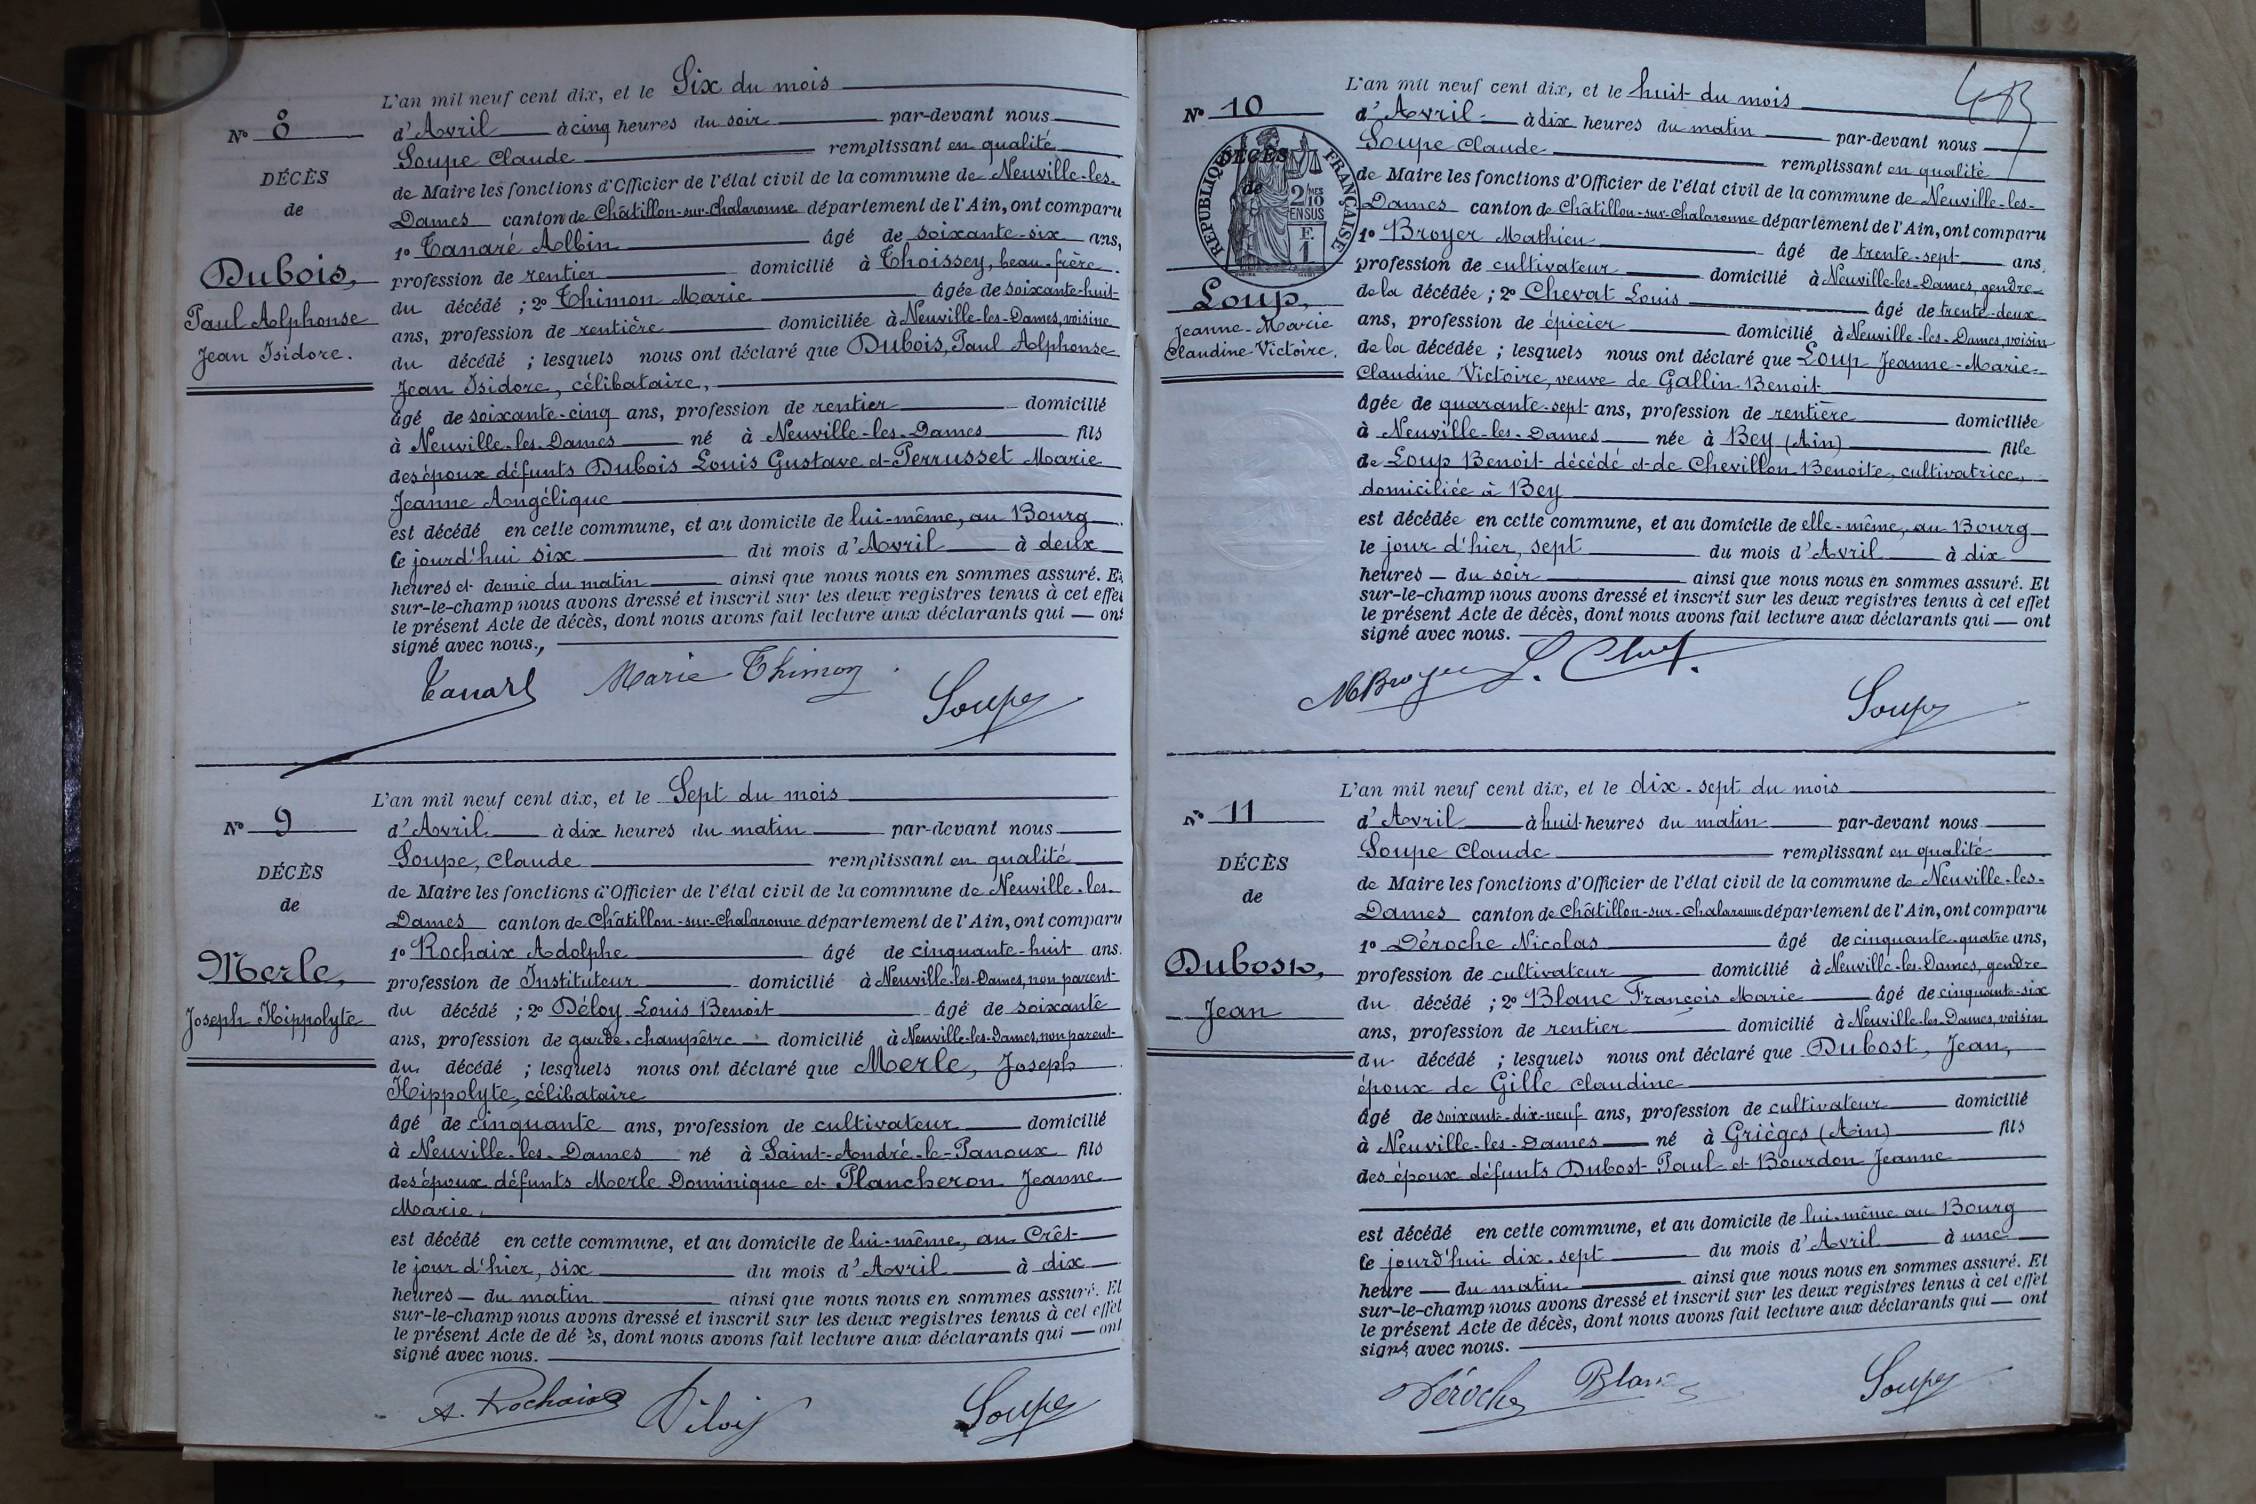 L'an mil neuf cent dix, et le Six du mois
N° 8
d'Avril à cinq heures du soir par-devant nous
Soupe Claude remplissant en qualité
DÉCÈS
de Maire les fonctions d'Officier de l'état civil de la commune de Neuville-les-
de
Dames canton de Châtillon-sur-Chalaronne département de l'Ain, ont comparu
1° Canaré Albin âgé de soixante-six ans,
Dubois,
profession de rentier domicilié à Thoissey, beau-frère
du décédé ; 2° Thimon Marie âgée de soixante-huit
Paul Alphonse
ans, profession de rentière domiciliée à Neuville-les-Dames, voisine
Jean Isidore.
du décédé ; lesquels nous ont déclaré que Dubois, Paul Alphonse
Jean Isidore, célibataire,
âgé de soixante-cinq ans, profession de rentier domicilié
à Neuville-les-Dames né à Neuville-les-Dames fils
des époux défunts Dubois Louis Gustave et Perrusset Marie
Jeanne Angélique
est décédé en cette commune, et au domicile de lui-même, au Bourg
ce jourd'hui six du mois d'Avril à deux
heures et demie du matin ainsi que nous nous en sommes assuré. Et
sur-le-champ nous avons dressé et inscrit sur les deux registres tenus à cet effet
le présent Acte de décès, dont nous avons fait lecture aux déclarants qui — ont
signé avec nous.
Marie Thimon
Soupe
L'an mil neuf cent dix, et le Sept du mois
N° 9
d'Avril à dix heures du matin par-devant nous
Soupe, Claude remplissant en qualité
DÉCÈS
de Maire les fonctions d'Officier de l'état civil de la commune de Neuville-les-
de
Dames canton de Châtillon-sur-Chalaronne département de l'Ain, ont comparu
1° Rochaix Adolphe âgé de cinquante-huit ans.
Merle,
profession de Instituteur domicilié à Neuville-les-Dames, non parent
du décédé ; 2° Déloy Louis Benoit âgé de soixante
Joseph Hippolyte
ans, profession de garde-champêtre domicilié à Neuville-les-Dames, non parent
du décédé ; lesquels nous ont déclaré que Merle, Joseph
Hippolyte, célibataire
âgé de cinquante ans, profession de cultivateur domicilié
à Neuville-les-Dames né à Saint-André-le-Panoux fils
des époux défunts Merle Dominique et Plancheron Jeanne
Marie.
est décédé en cette commune, et au domicile de lui-même, au Crêt
le jour d'hier, six du mois d'Avril à dix
heures — du matin ainsi que nous nous en sommes assuré. Et
sur-le-champ nous avons dressé et inscrit sur les deux registres tenus à cet effet
le présent Acte de décès, dont nous avons fait lecture aux déclarants qui — ont
signé avec nous.
A. Rochaix Déloy Soupe
L'an mil neuf cent dix, et le huit du mois
N° 10
d'Avril à dix heures du matin par-devant nous
Soupe Claude remplissant en qualité
DÉCÈS
de
RÉPUBLIQUE FRANÇAISE
2/10 MES
EN SUS
F.
1
de Maire les fonctions d'Officier de l'état civil de la commune de Neuville-les-
Dames canton de Châtillon-sur-Chalaronne département de l'Ain, ont comparu
1° Broyer Mathieu âgé de trente-sept ans.
profession de cultivateur domicilié à Neuville-les-Dames, gendre
Loup,
de la décédée ; 2° Chevat Louis âgé de trente-deux
Jeanne-Marie
ans, profession de épicier domicilié à Neuville-les-Dames, voisin
Claudine-Victoire.
de la décédée ; lesquels nous ont déclaré que Loup Jeanne-Marie-
Claudine Victoire, veuve de Gallin Benoit
âgée de quarante-sept ans, profession de rentière domiciliée
à Neuville-les-Dames née à Bey (Ain) fille
de Loup Benoit décédé et de Chevillon Benoite, cultivatrice,
domiciliée à Bey
est décédée en cette commune, et au domicile de elle-même, au Bourg
le jour d'hier, sept du mois d'Avril à dix
heures — du soir ainsi que nous nous en sommes assuré. Et
sur-le-champ nous avons dressé et inscrit sur les deux registres tenus à cet effet
le présent Acte de décès, dont nous avons fait lecture aux déclarants qui — ont
signé avec nous.
MBroyer Soupe
L'an mil neuf cent dix, et le dix-sept du mois
N° 11
d'Avril à huit heures du matin par-devant nous
Soupe Claude remplissant en qualité
DÉCÈS
de Maire les fonctions d'Officier de l'état civil de la commune de Neuville-les-
de
Dames canton de Châtillon-sur-Chalaronne département de l'Ain, ont comparu
1° Déroche Nicolas âgé de cinquante-quatre ans,
Dubost,
profession de cultivateur domicilié à Neuville-les-Dames, gendre
du décédé ; 2° Blanc François Marie âgé de cinquante-six
Jean
ans, profession de rentier domicilié à Neuville-les-Dames, voisin
du décédé ; lesquels nous ont déclaré que Dubost, Jean,
époux de Gille Claudine
âgé de soixante-dix-neuf ans, profession de cultivateur domicilié
à Neuville-les-Dames né à Grièges (Ain) fils
des époux défunts Dubost Paul et Bourdon Jeanne
est décédé en cette commune, et au domicile de lui-même au Bourg
ce jourd'hui dix-sept du mois d'Avril à une
heure — du matin ainsi que nous nous en sommes assuré. Et
sur-le-champ nous avons dressé et inscrit sur les deux registres tenus à cet effet
le présent Acte de décès, dont nous avons fait lecture aux déclarants qui — ont
signé avec nous.
Déroche Blanc Soupe